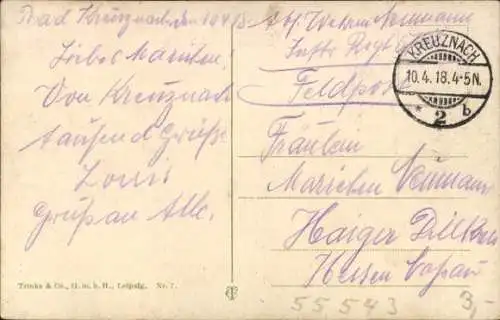 Bad Kreuznach den 10.4.18
Liebes Mariechen.
Von Kreuznach
tausend Grüße
Louis
Gruß an Alle.
Trinks & Co., G. m. b. H., Leipzig. Nr. 7.
Abs. Neumann
Inftr Regt
Feldpost
KREUZNACH
10.4.18.4-5N.
* 2 b
Fräulein
Mariechen Neumann
Haiger Dillkreis
Hessen Nassau
55,543
3,-